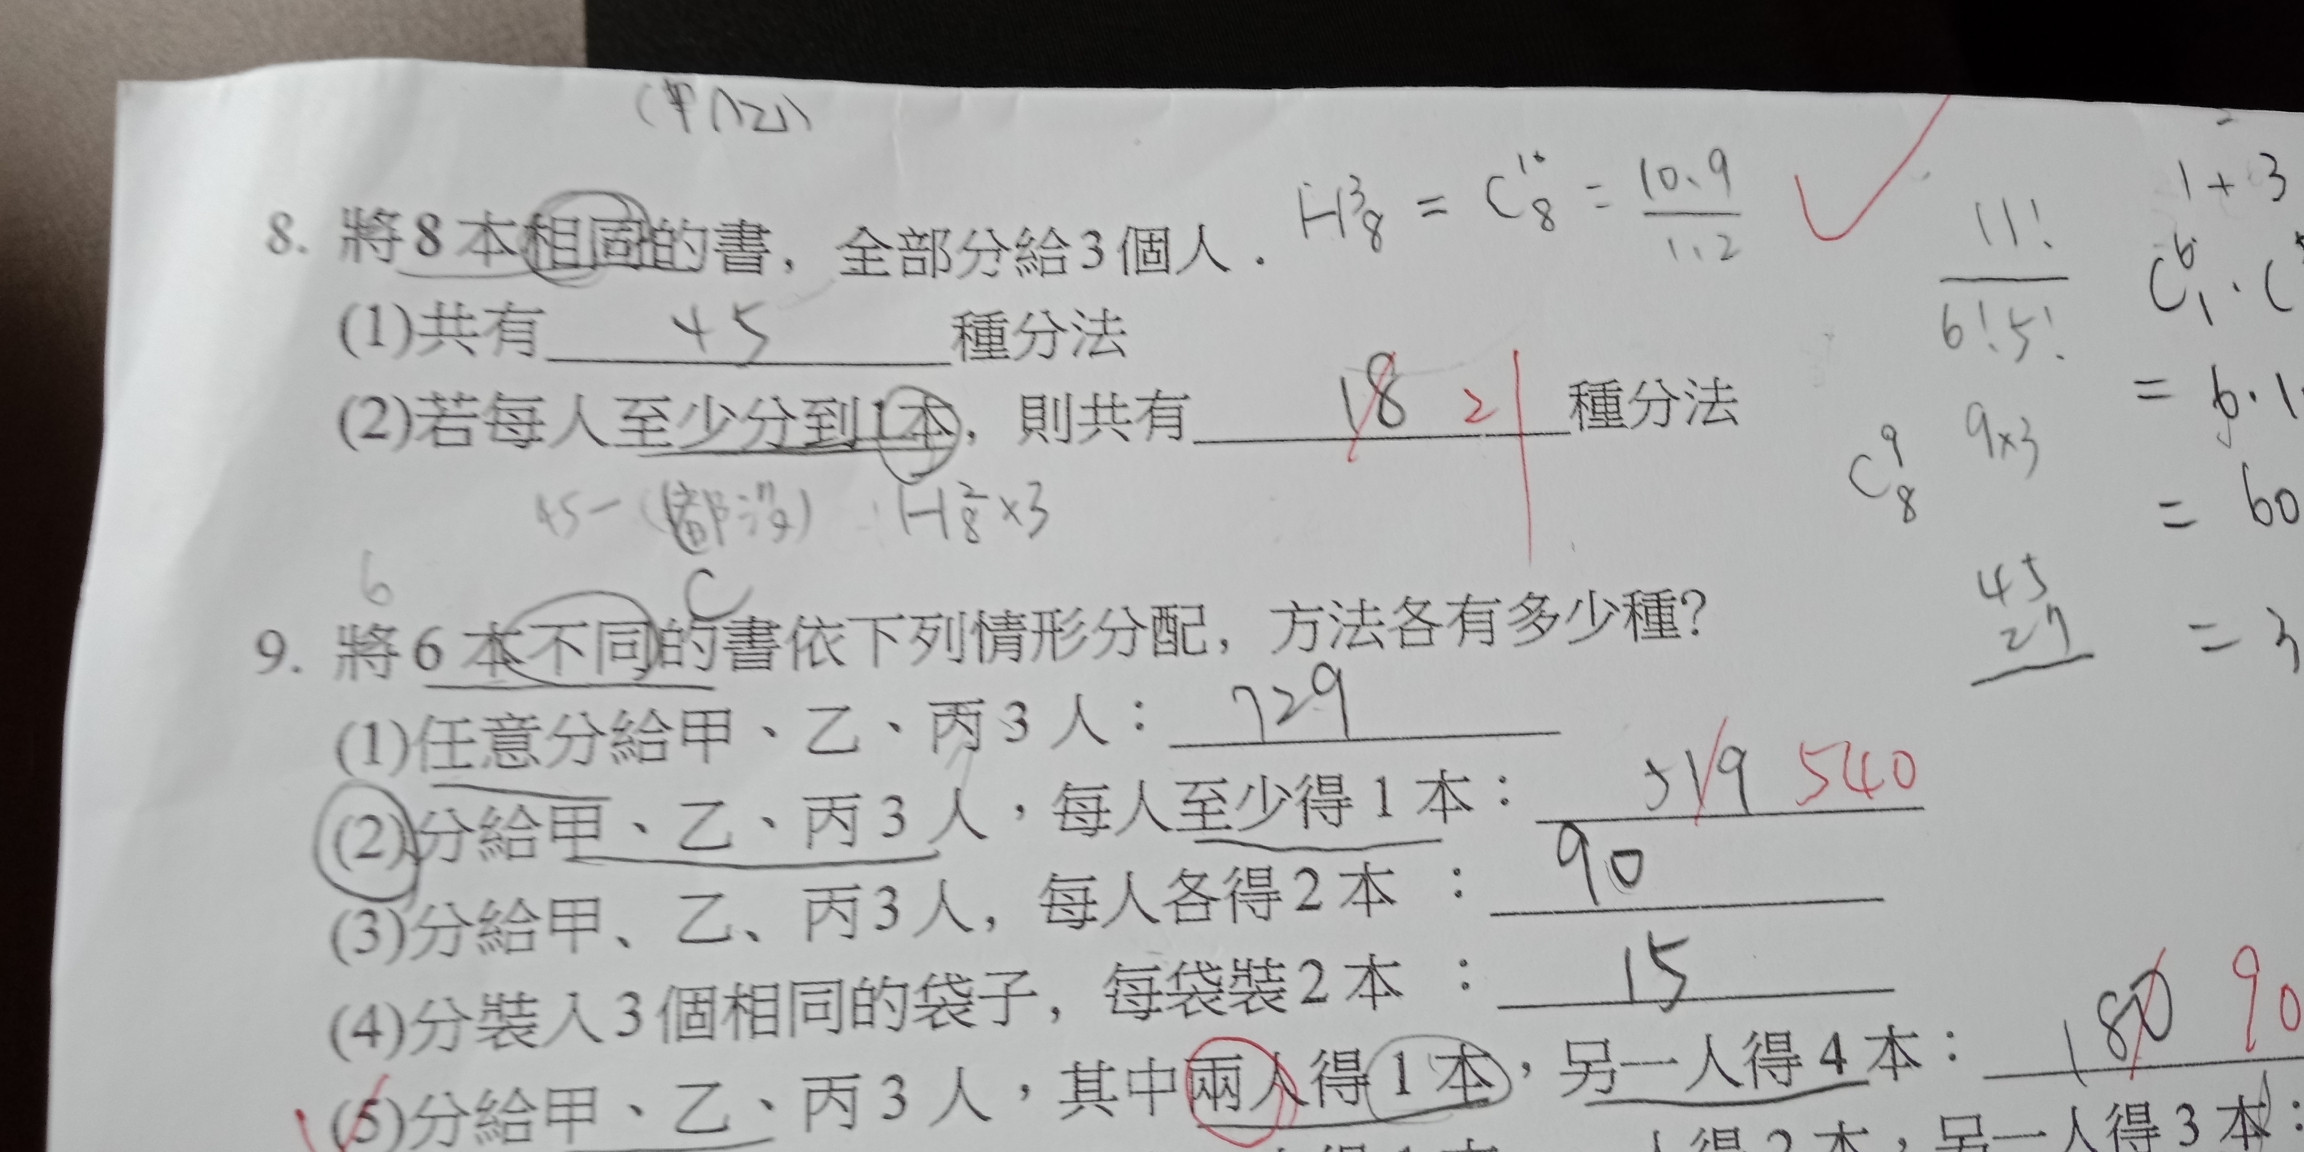 (甲∩乙)
8. 將8本相同的書，全部分給3個人．
H³₈ = C¹⁰₈ = 10.9 / 1.2
(1)共有 45 種分法
(2)若每人至少分到1本，則共有 18 21 種分法
45-(都沒) H²₈×3
11! / 6!5!
C⁹₈ 9×3
45
27
1+3
C⁶₁.C
= 6.1
= 60
= 3
6
C
9. 將6本不同的書依下列情形分配，方法各有多少種?
(1)任意分給甲、乙、丙3人： 729
(2)分給甲、乙、丙3人，每人至少得1本： 519 540
(3)分給甲、乙、丙3人，每人各得2本 ： 90
(4)分裝入3個相同的袋子，每袋裝2本 ： 15
(5)分給甲、乙、丙3人，其中兩人得1本，另一人得4本： 180 90
人得2本，另一人得3本：